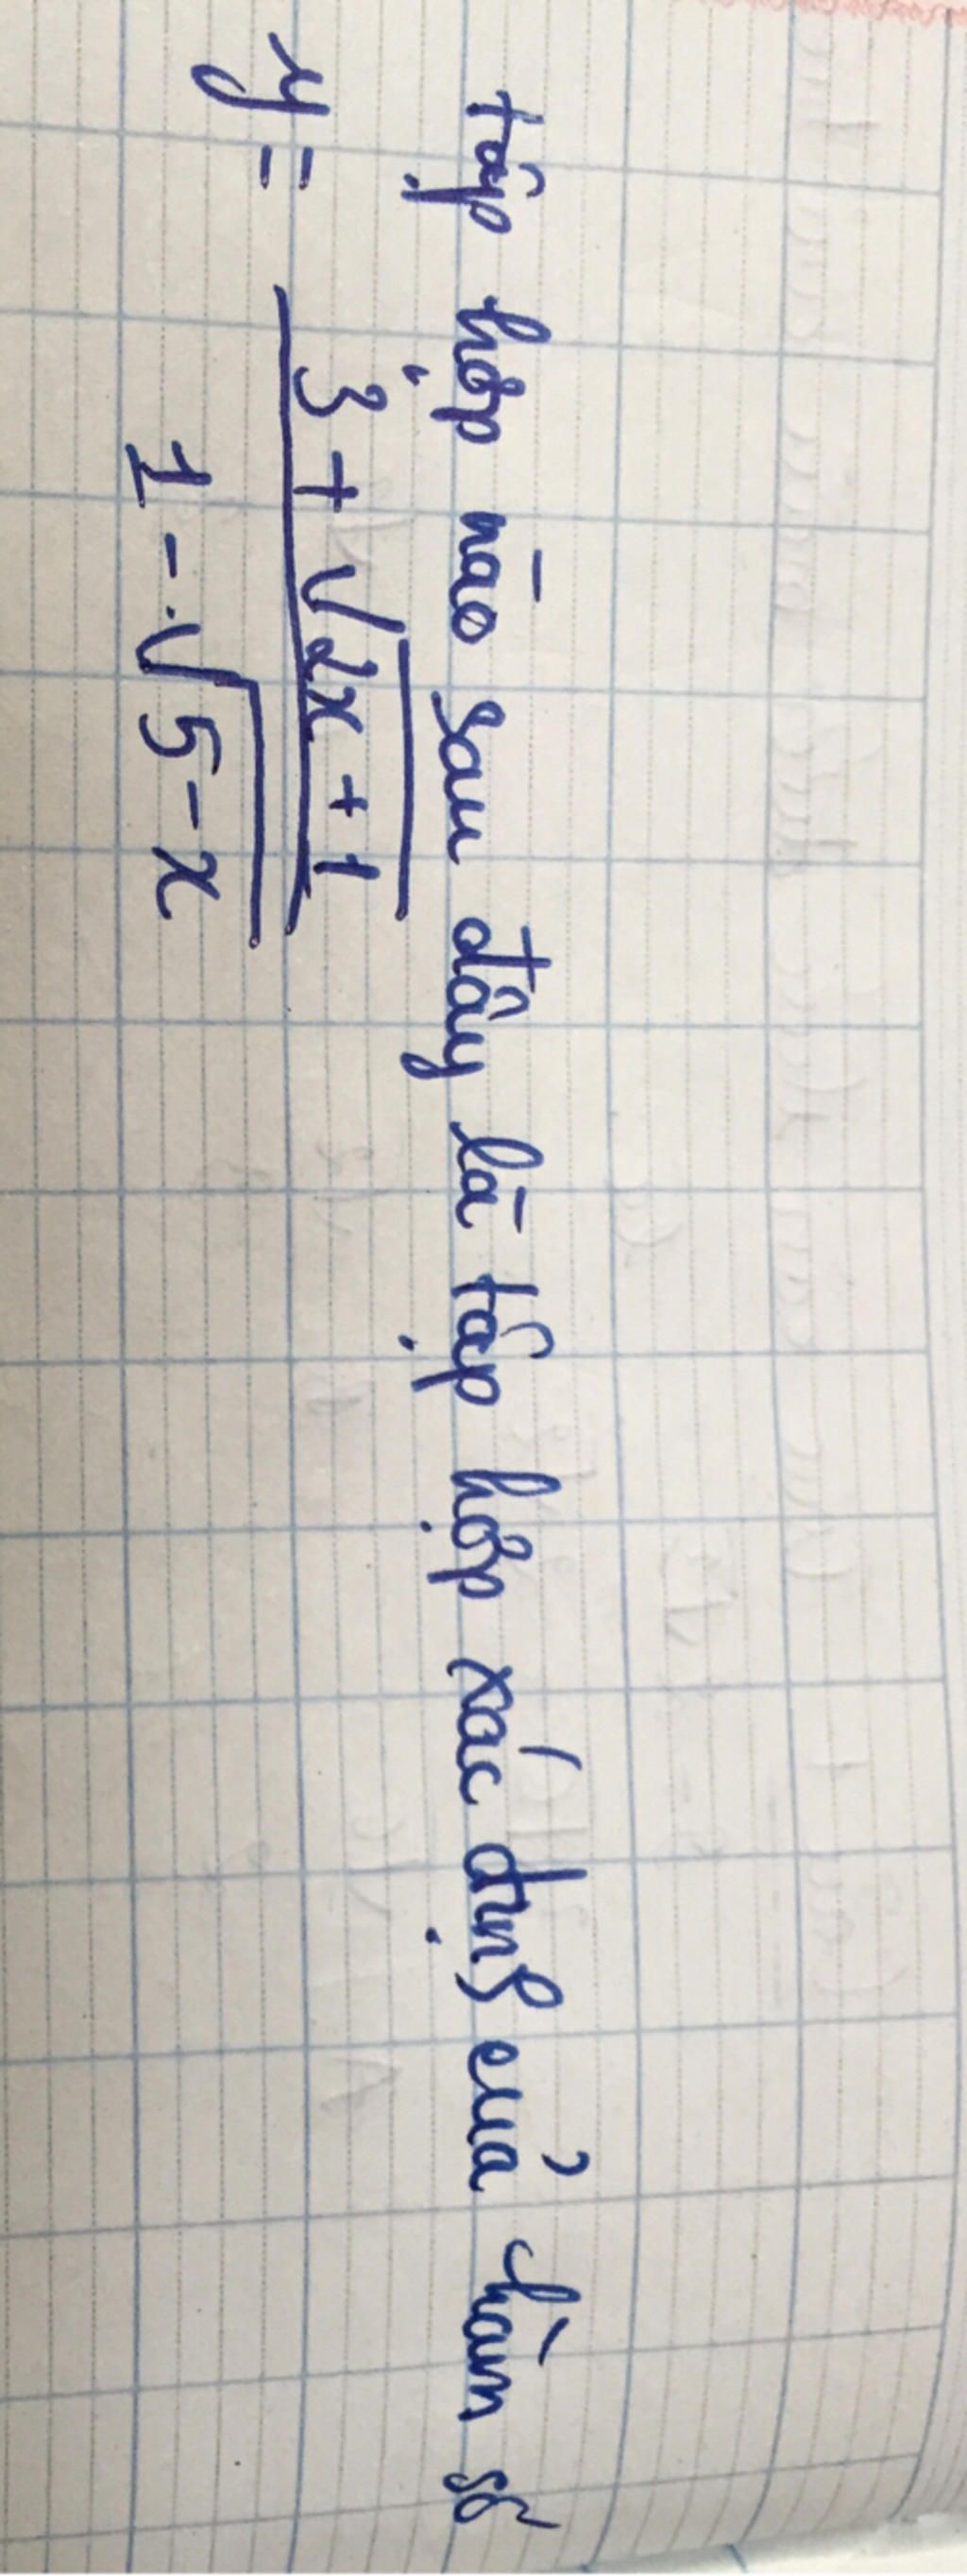 tập hợp nào sau đây là tập hợp xác định của hàm số
y = \frac{3 + \sqrt{2x + 1}}{1 - \sqrt{5 - x}}